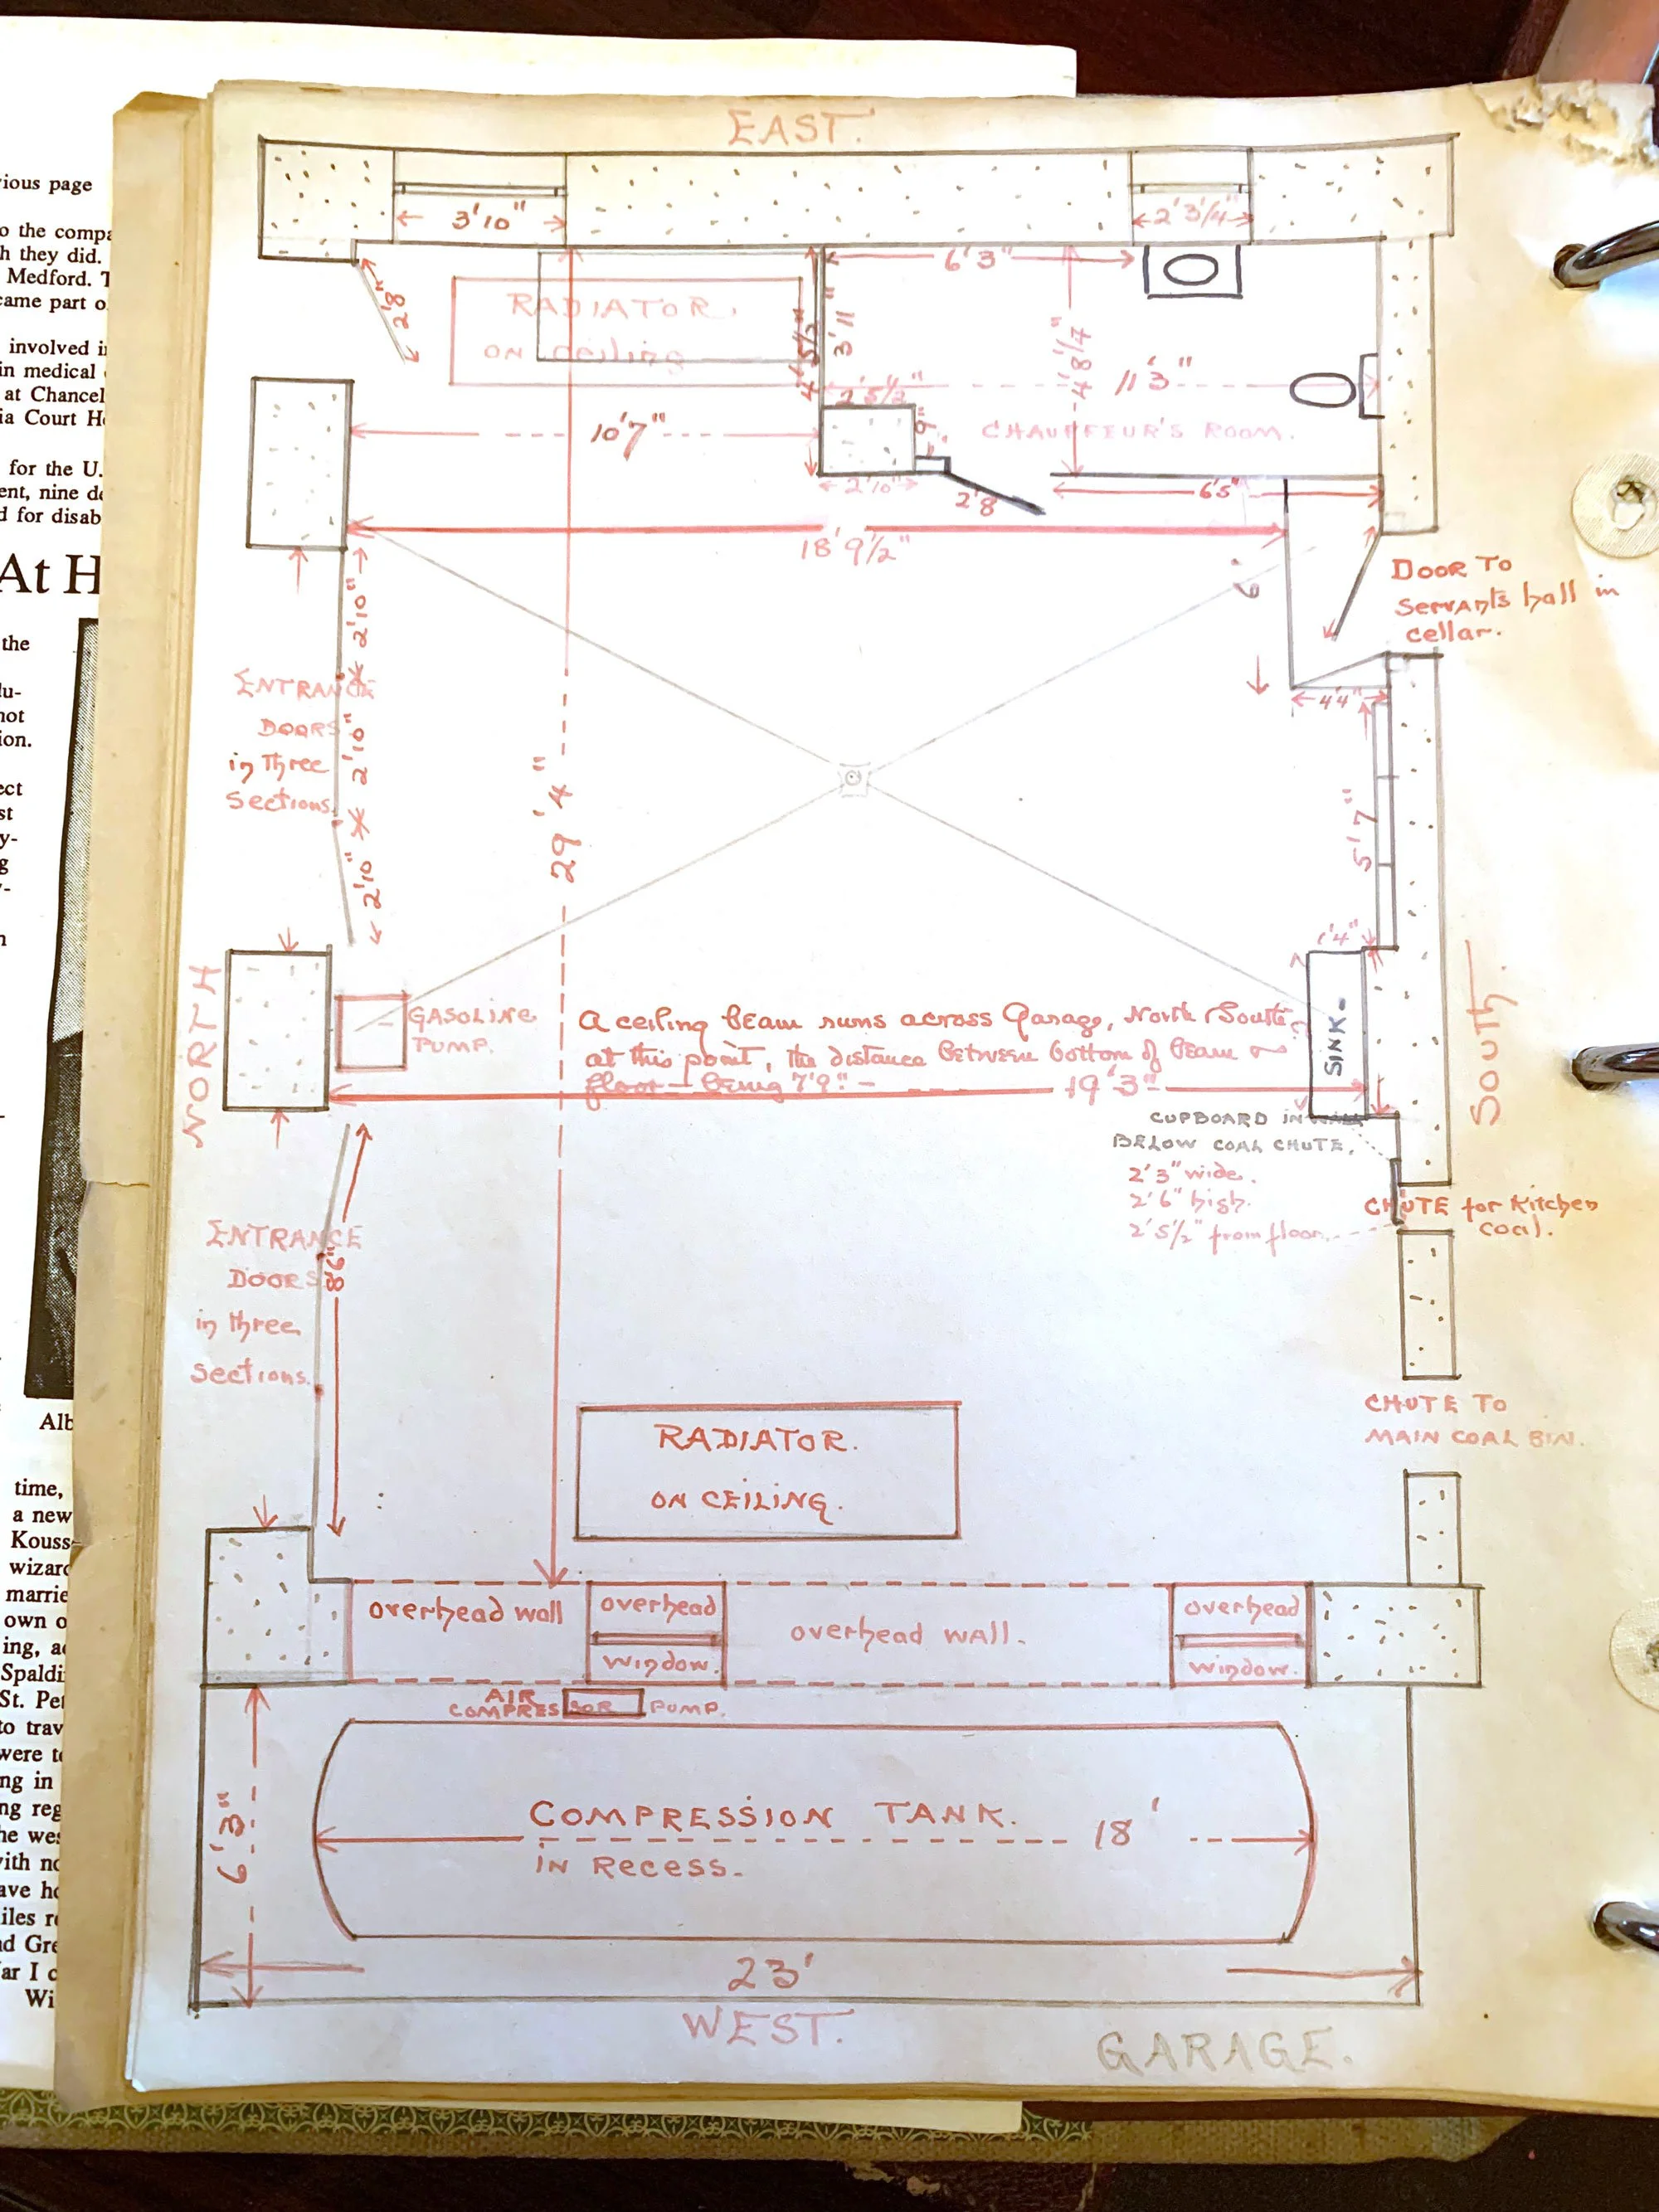 EAST.
3'10"
2'3/4"
2'8"
RADIATOR.
ON ceiling
6'3"
3'11"
4'5½"
4'8¼"
11'3"
2'5½"
9"
CHAUFFEUR'S ROOM.
10'7"
2'10"
2'8
6'5"
18'9½"
6'
DOOR TO
Servants hall in
cellar.
2'10"
2'10"
2'10"
ENTRANCE
DOORS
in three
sections.
4'4"
5'7"
29'4"
1'4"
NORTH
SOUTH.
GASOLINE
PUMP.
A ceiling beam runs across Garage, North & South
at this point, the distance between bottom of beam &
floor being 7'9".
19'3"
SINK
CUPBOARD IN WALL
BELOW COAL CHUTE.
2'3" wide.
2'6" high.
2'5½" from floor.
CHUTE for Kitchen
coal.
ENTRANCE
DOORS
in three
sections.
8'6"
CHUTE TO
MAIN COAL BIN.
RADIATOR.
ON CEILING.
overhead wall
overhead
window.
overhead WALL.
overhead
window.
AIR
COMPRESSOR PUMP.
COMPRESSION TANK.
18'
IN Recess.
6'3"
23'
WEST.
GARAGE.
vious page
o the compa
h they did.
Medford. T
came part o
involved i
in medical
at Chancel
ia Court H
for the U.
ent, nine d
d for disab
At H
the
du-
not
ion.
ect
st
y-
g
Alb
time,
a new
Kouss
wizard
marrie
own o
ing, a
Spaldi
St. Pe
to trav
were t
ng in
ng reg
he wes
with no
ave h
iles r
nd Gre
ar I c
Wi